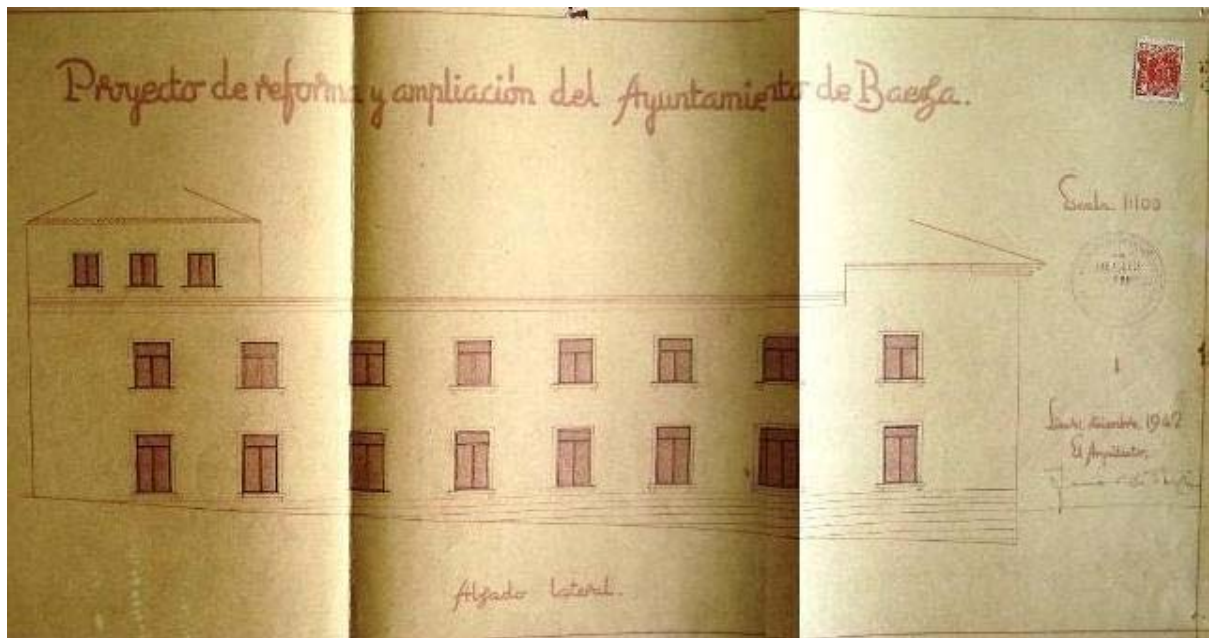 Proyecto de reforma y ampliación del Ayuntamiento de Baeza.
Escala 1:100
diciembre 1942
El Arquitecto,
Alzado lateral.